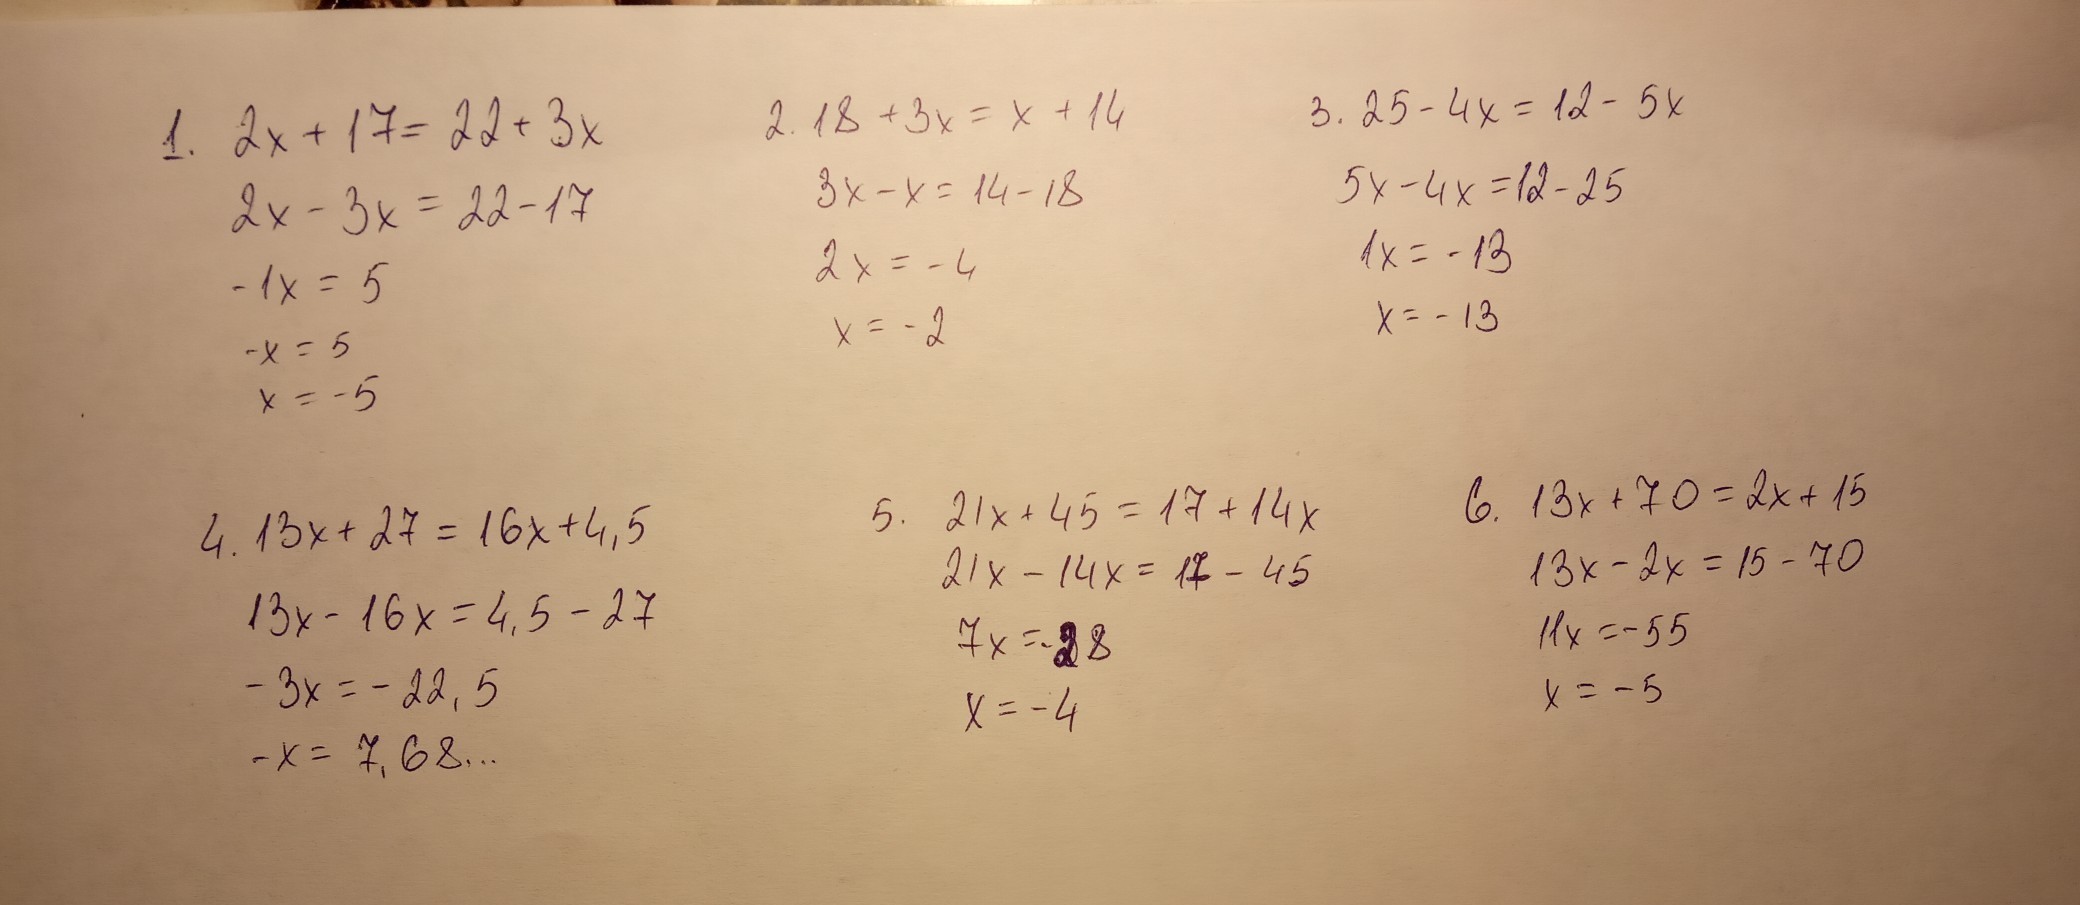 1. 2x + 17 = 22 + 3x
2x - 3x = 22 - 17
-1x = 5
-x = 5
x = -5
2. 18 + 3x = x + 14
3x - x = 14 - 18
2x = -4
x = -2
3. 25 - 4x = 12 - 5x
5x - 4x = 12 - 25
1x = -13
x = -13
4. 13x + 27 = 16x + 4,5
13x - 16x = 4,5 - 27
-3x = -22,5
-x = 7,68...
5. 21x + 45 = 17 + 14x
21x - 14x = 17 - 45
7x = -28
x = -4
6. 13x + 70 = 2x + 15
13x - 2x = 15 - 70
11x = -55
x = -5